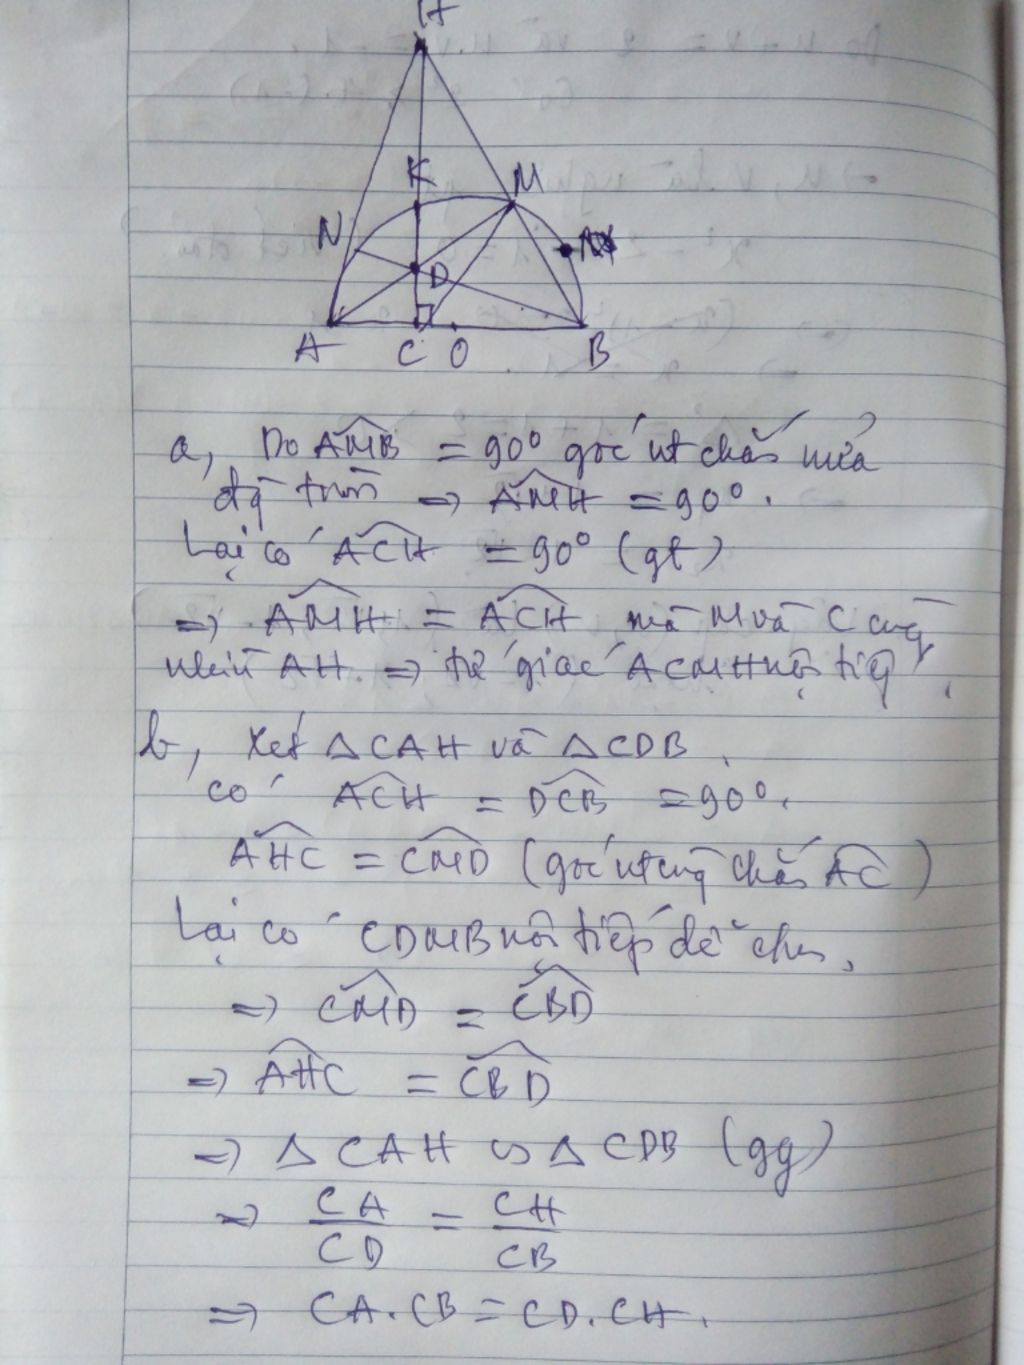 H
K
M
N
D
A
C
O
B
a, Do AMB = 90° góc nt chắn nửa
đg tròn => AMH = 90°.
Lại có ACH = 90° (gt)
=> AMH = ACH mà M và C cùng
nhìn AH => tứ giác ACMH nội tiếp,
b, Xét Δ CAH và Δ CDB.
có ACH = DCB = 90°.
AHC = CMD (góc nt cùng chắn AC)
Lại có CDMB nội tiếp
=> CMD = CBD
=> AHC = CBD
=> Δ CAH ∽ Δ CDB (gg)
=> CA/CD = CH/CB
=> CA.CB = CD.CH.